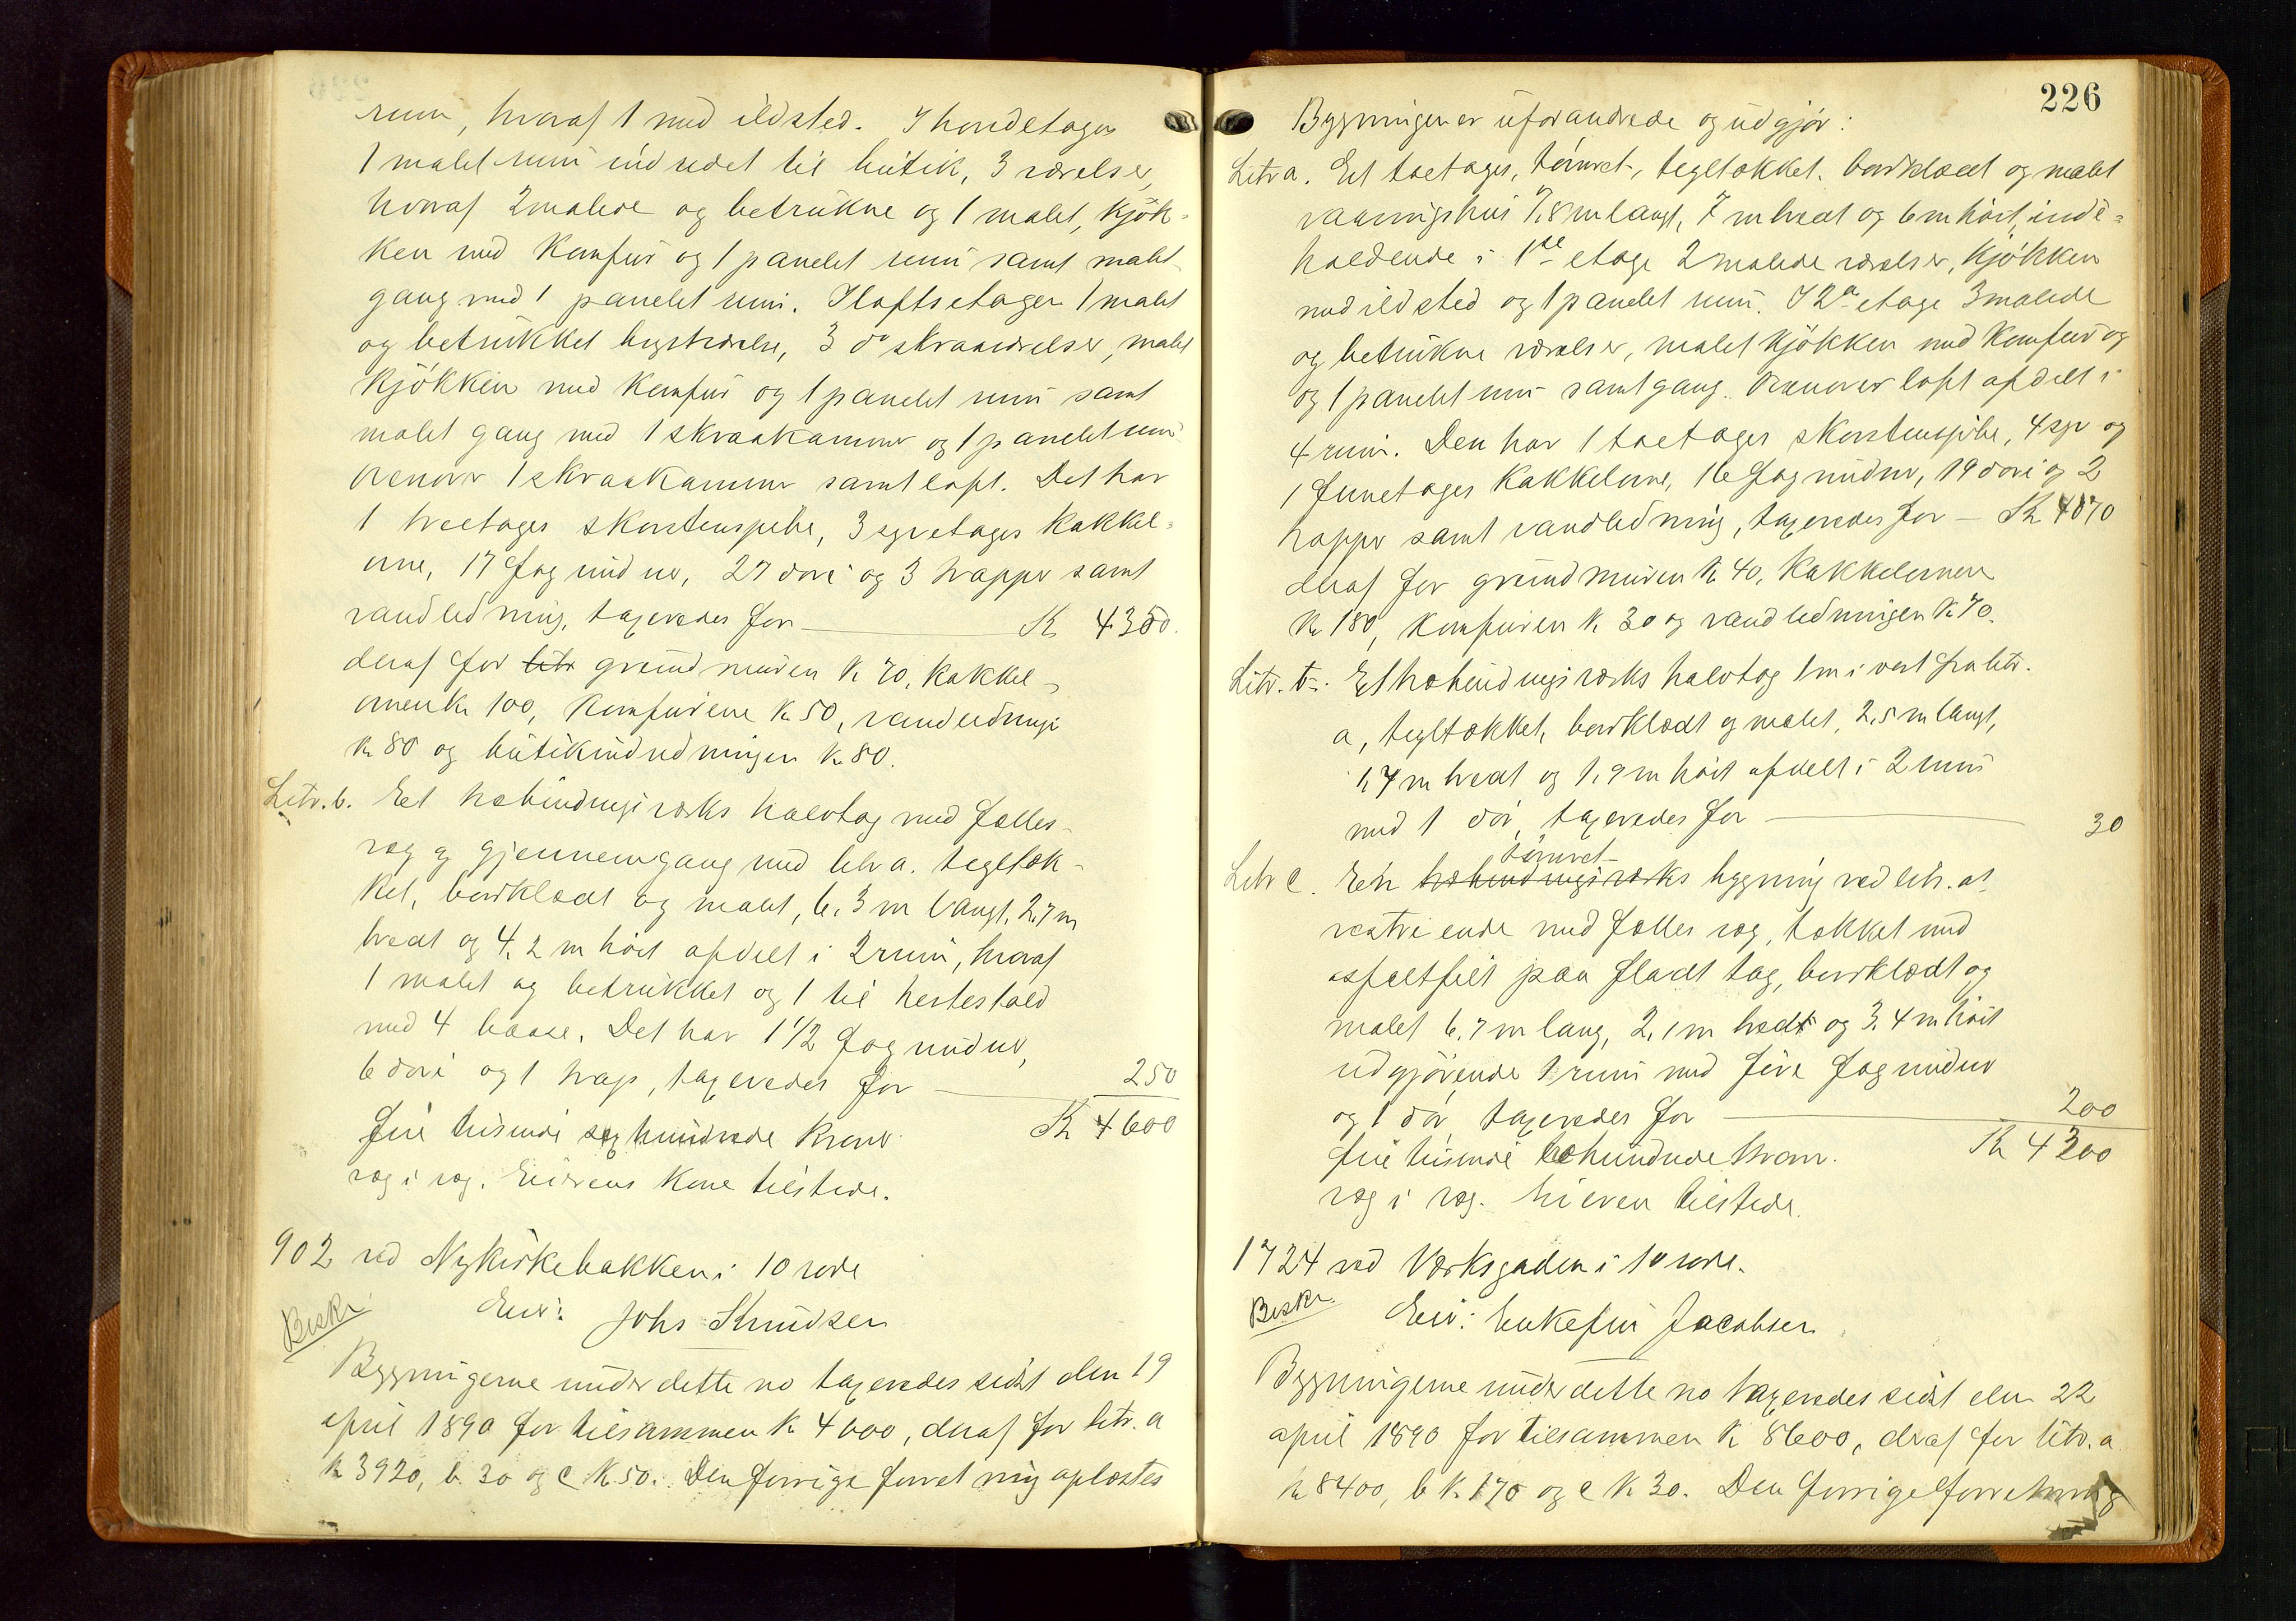 rum, hvoraf 1 med ildsted. I hovedetagen
1 malet rum indredet til butik, 3 værelser,
hvoraf 2 malede og betrukne og 1 malet, kjök-
ken med komfur og 1 panelet rum samt malet
gang med 1 panelet rum. I loftsetagen 1 malet
og betrukket kvistværelse, 3 do skraaværelser, malet
kjökken med komfur og 1 panelet rum samt
malet gang med 1 skraakammer og 1 panelet rum
ovenover 1 skraakammer samt loft. Det har
1 treetages skorstenspibe, 3 syvetages kakkel-
ovne, 17 fag vinduer, 27 döre og 3 trapper samt
vandledning, taxeredes for — K 4350.
deraf for litr grundmuren K 70, kakkel-
ovnen K 100, komfurene K 50, vandledningen
K 80 og butikindredningen K 80.
Litr. b. Et træbindingsværks halvtag med fælles-
væg og gjennemgang med litr a. tegltæk-
ket, bordklædt og malet, 6,3 m langt, 2,7 m
bredt og 4,2 m höit afdelt i 2 rum, hvoraf
1 malet og betrukket og 1 til hestestald
med 4 baase. Det har 1 1/2 fag vinduer,
6 döre og 1 trap, taxeredes for — 250
fire tusinde sex hundrede kroner. K 4600
væg i væg. Eierens kone tilstede.
902 ved Nykirkebakken i 10 rode
Beskr. Eier: Johs Knudsen
Bygningerne under dette no taxeredes sidst den 19
april 1890 for tilsammen K 4000, deraf for litr. a
K 3920, b. 30 og c K 50. Den forrige forretning oplæstes
226
Bygningen er uforandrede og udgjör:
Litr a. Et toetages, tömret, tegltækket, bordklædt og malet
vaaningshus 7,8 m langt, 7 m bredt og 6 m höit, inde-
holdende i 1ste etage 2 malede værelser, kjökken
med ildsted og 1 panelet rum. I 2den etage 3 malede
og betrukne værelser, malet kjökken med komfur og
og 1 panelet rum samt gang. Ovenover loft afdelt i
4 rum. Den har 1 toetages skorstenspibe, 4 syv og
1 femetages kakkelovne, 16 fag vinduer, 19 döre og 2
trapper samt vandledning, taxeredes for — K 4070
deraf for grundmuren K 40, kakkelovnene
K 180, komfuren K 30 og vandledningen K 70.
Litr. b. Et træbindingsværks halvtag 1 m i vest fra litr.
a, tegltækket, bordklædt og malet, 2,5 m langt,
1,7 m bredt og 1,9 m höit afdelt i 2 rum
med 1 dör, taxeredes for — 30
tömret
Litr c. En træbindingsværks bygning ved litr. a's
vestre ende med fælles væg, tækket med
asfaltfilt paa fladt tag, bordklædt og
malet 6,7 m lang, 2,1 m bredt og 3,4 m höit
udgjörende 1 rum med fire fag vinduer
og 1 dör, taxeredes for — 200
fire tusinde trehundrede kroner. K 4300
væg i væg. Eieren tilstede.
1724 ved Værksgaden i 10 rode.
Beskr. Eier: Enkefru Jacobsen
Bygningerne under dette no taxeredes sidst den 22
april 1890 for tilsammen K 8600, deraf for litr. a
K 8400, b K. 170 og c K 30. Den forrige forretning